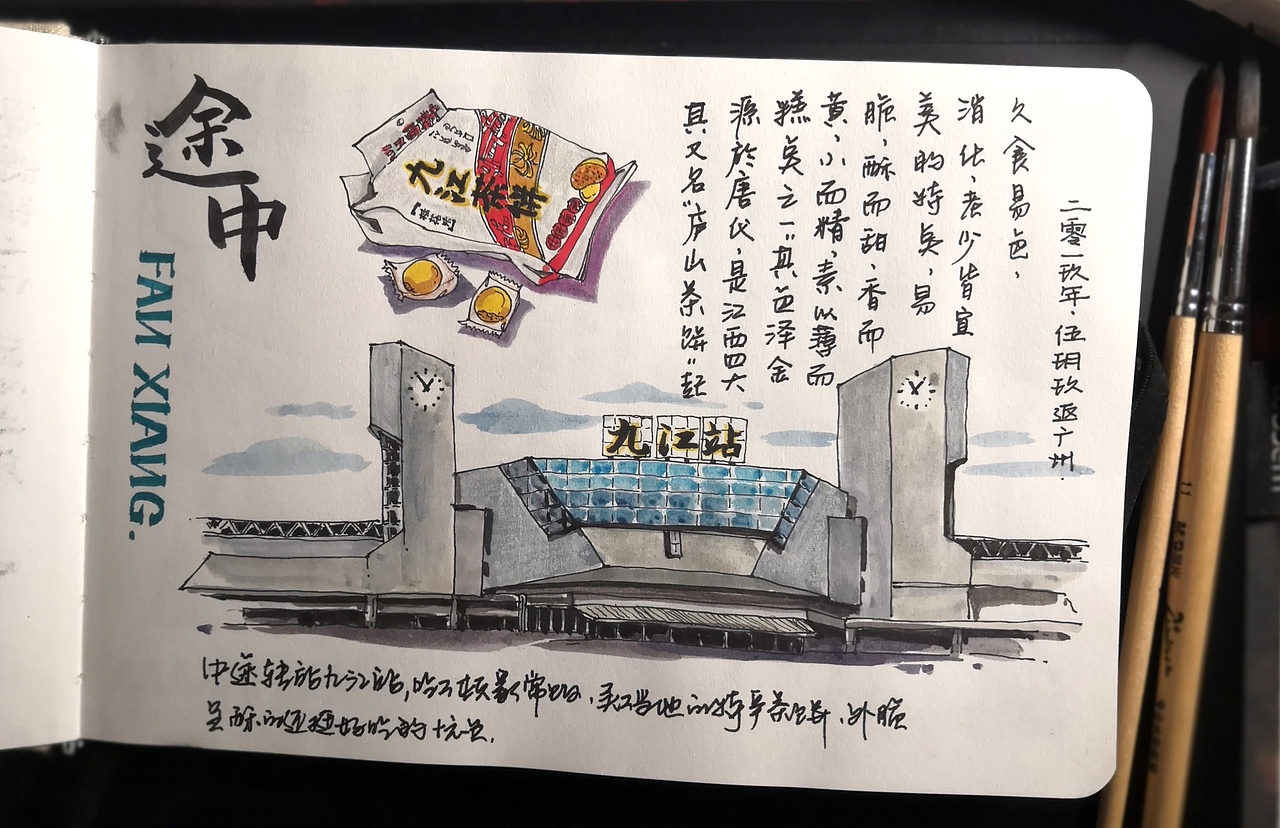 途中
FAN XIANG.
九江茶饼
其又名“庐山茶饼”起
源於唐代，是江西四大
糕奌之一。其色泽金
黄，小而精，素以薄而
脆，酥而甜，香而
美的特奌，易
消化，老少皆宜
久食易色，
二零一玖年．伍玥玖返广州．
九江站
中途转站九江站，吃了顿家常饭，买了当地的特产茶饼，外脆
里酥的还挺好吃的
11